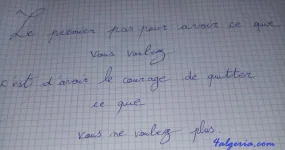 Le premier pas pour avoir ce que
vous voulez
c'est d'avoir le courage de quitter
ce que
vous ne voulez plus.
4algeria.com